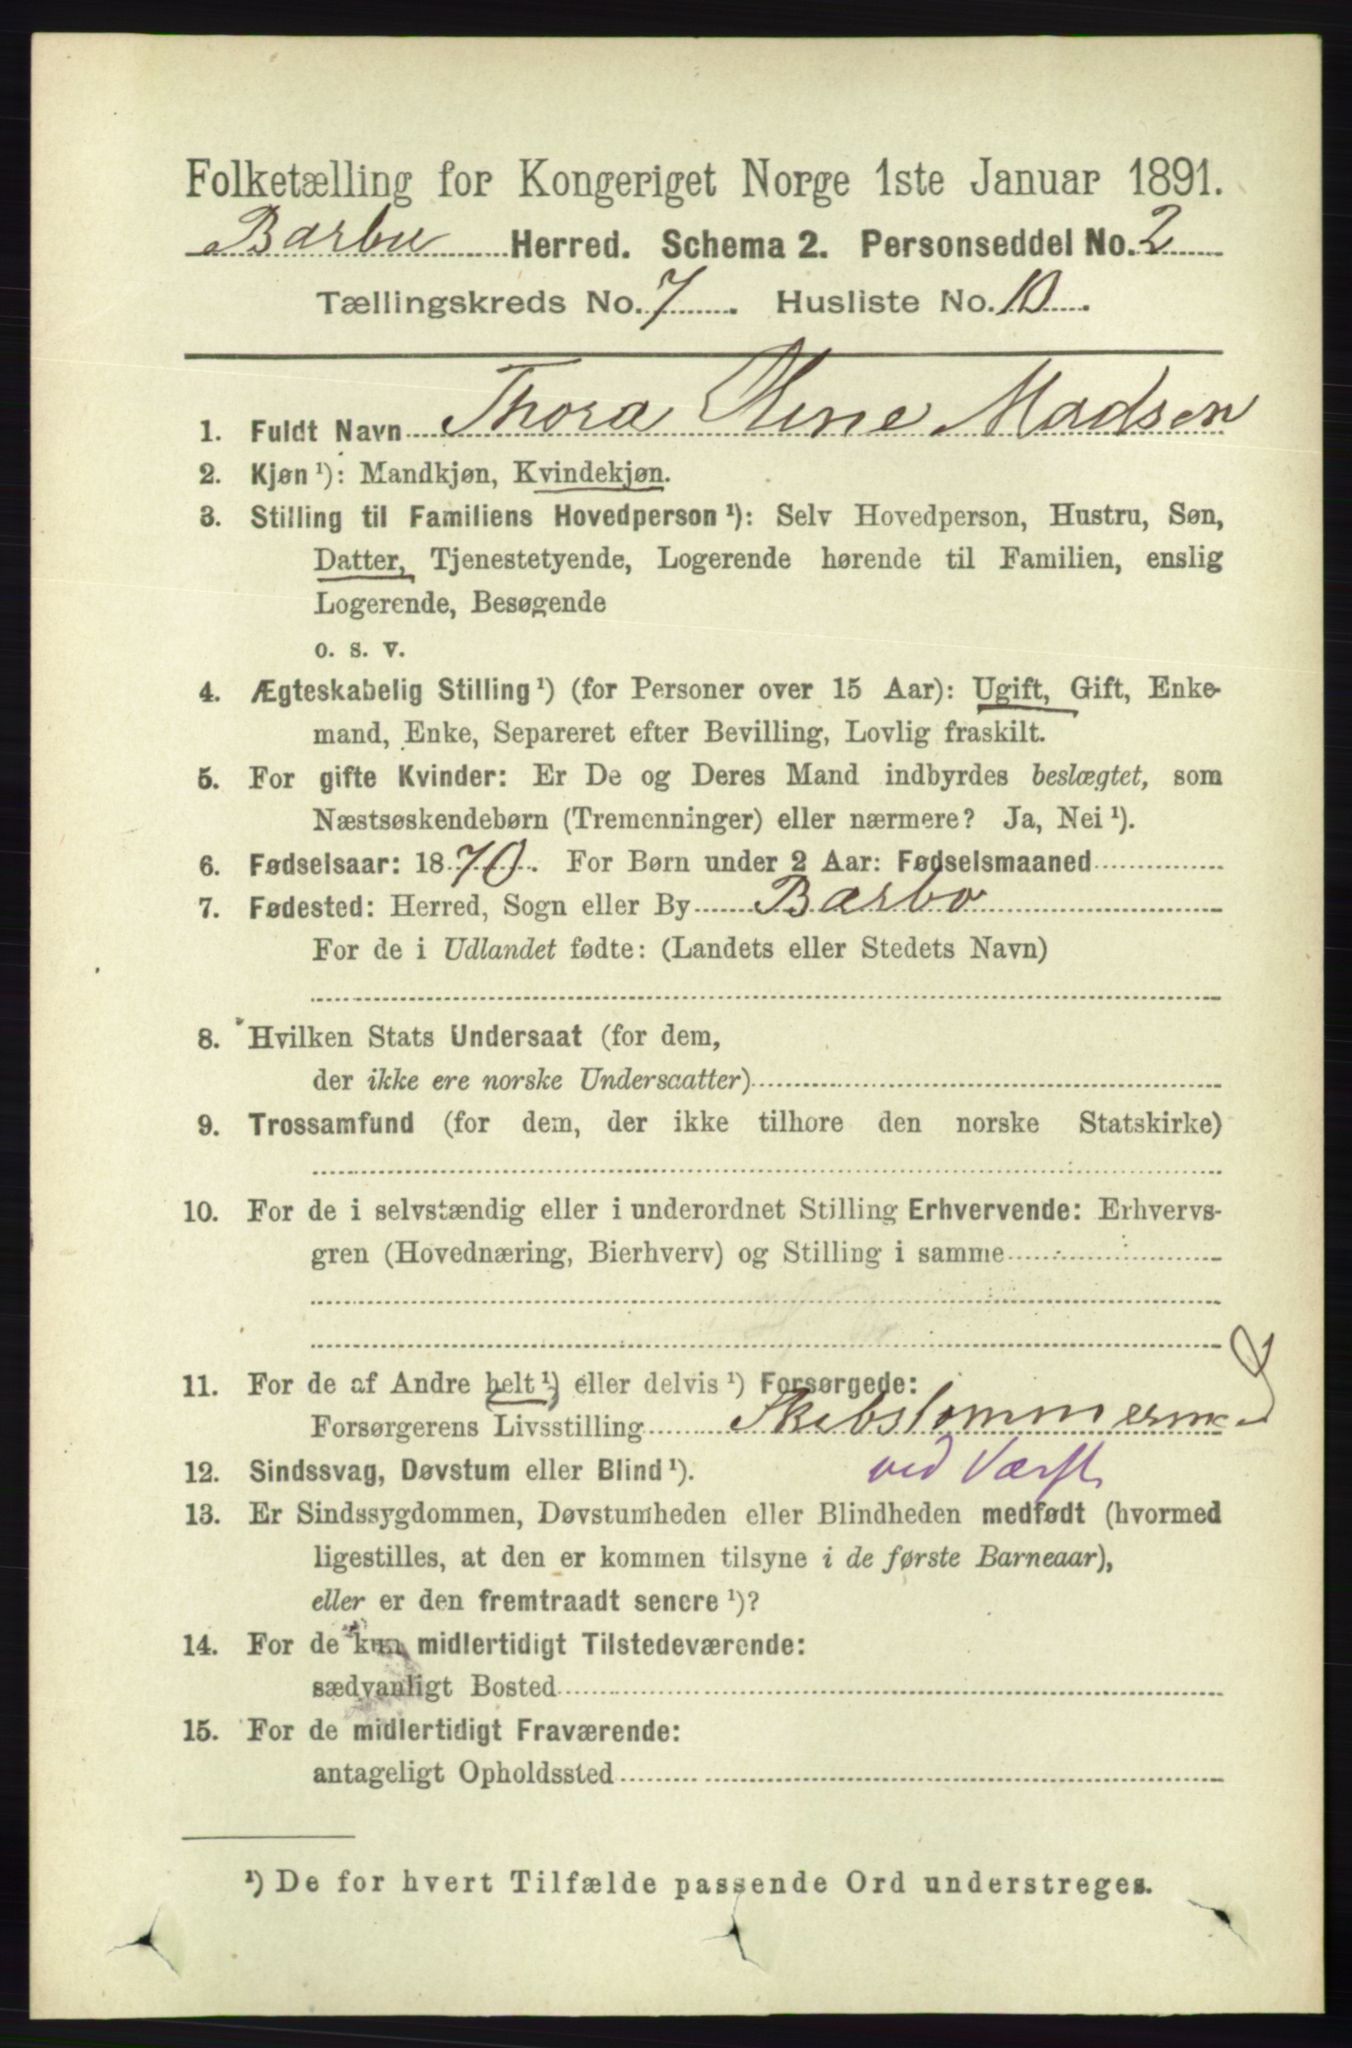 Folketælling for Kongeriget Norge 1ste Januar 1891.
Barbu Herred. Schema 2. Personseddel No. 2
Tællingskreds No. 7. Husliste No. 10.
1. Fuldt Navn Thora Oline Madsen
2. Kjøn ¹): Mandkjøn, Kvindekjøn.
3. Stilling til Familiens Hovedperson ¹): Selv Hovedperson, Hustru, Søn,
Datter, Tjenestetyende, Logerende hørende til Familien, enslig
Logerende, Besøgende
o. s. v.
4. Ægteskabelig Stilling ¹) (for Personer over 15 Aar): Ugift, Gift, Enke-
mand, Enke, Separeret efter Bevilling, Lovlig fraskilt.
5. For gifte Kvinder: Er De og Deres Mand indbyrdes beslægtet, som
Næstsøskendebørn (Tremenninger) eller nærmere? Ja, Nei ¹).
6. Fødselsaar: 1870. For Børn under 2 Aar: Fødselsmaaned
7. Fødested: Herred, Sogn eller By Barbo
For de i Udlandet fødte: (Landets eller Stedets Navn)
8. Hvilken Stats Undersaat (for dem,
der ikke ere norske Undersaatter)
9. Trossamfund (for dem, der ikke tilhore den norske Statskirke)
10. For de i selvstændig eller i underordnet Stilling Erhvervende: Erhvervs-
gren (Hovednæring, Bierhverv) og Stilling i samme
11. For de af Andre helt ¹) eller delvis ¹) Forsørgede:
Forsørgerens Livsstilling Skibstømmermd
12. Sindssvag, Døvstum eller Blind ¹). ved Værft
13. Er Sindssygdommen, Døvstumheden eller Blindheden medfødt (hvormed
ligestilles, at den er kommen tilsyne i de første Barneaar),
eller er den fremtraadt senere ¹)?
14. For de kun midlertidigt Tilstedeværende:
sædvanligt Bosted
15. For de midlertidigt Fraværende:
antageligt Opholdssted
¹) De for hvert Tilfælde passende Ord understreges.